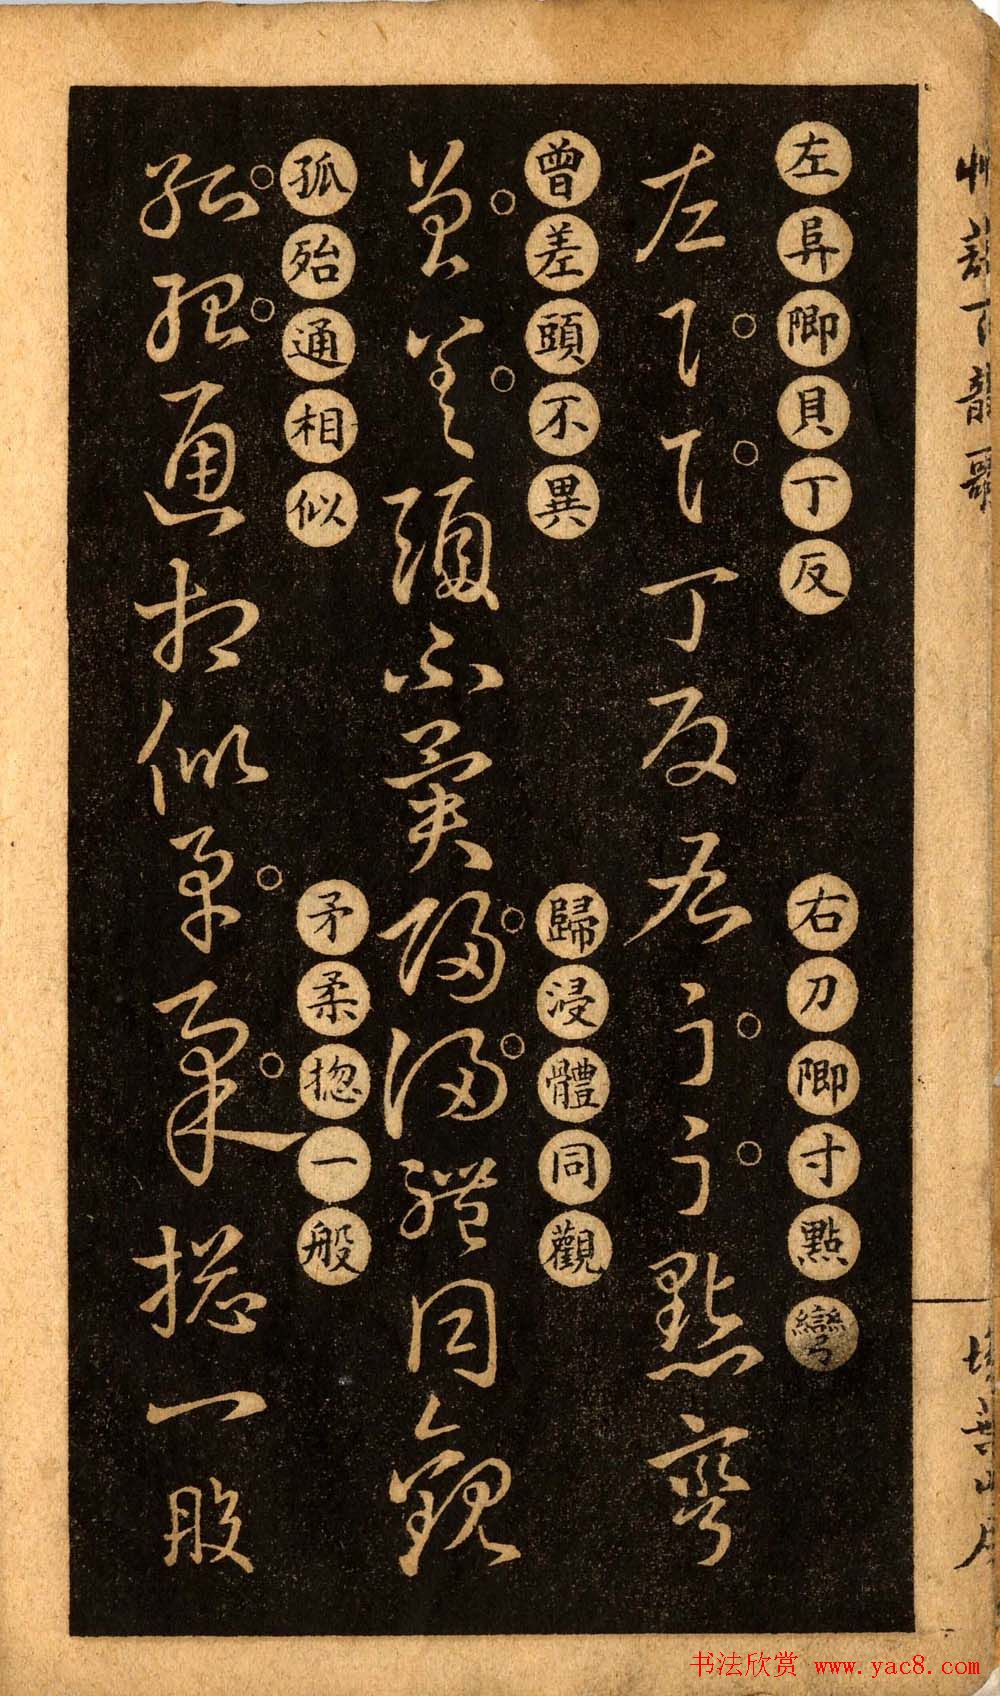 艸訣百韻歌
掃葉山房
左阜卽貝丁反
右刀卽寸點彎
左阜貝丁反右刀寸點彎
曾差頭不異
歸浸體同觀
曾差頭不異歸浸體同觀
孤殆通相似
矛柔揔一般
孤殆通相似矛柔揔一般
书法欣赏 www.yac8.com